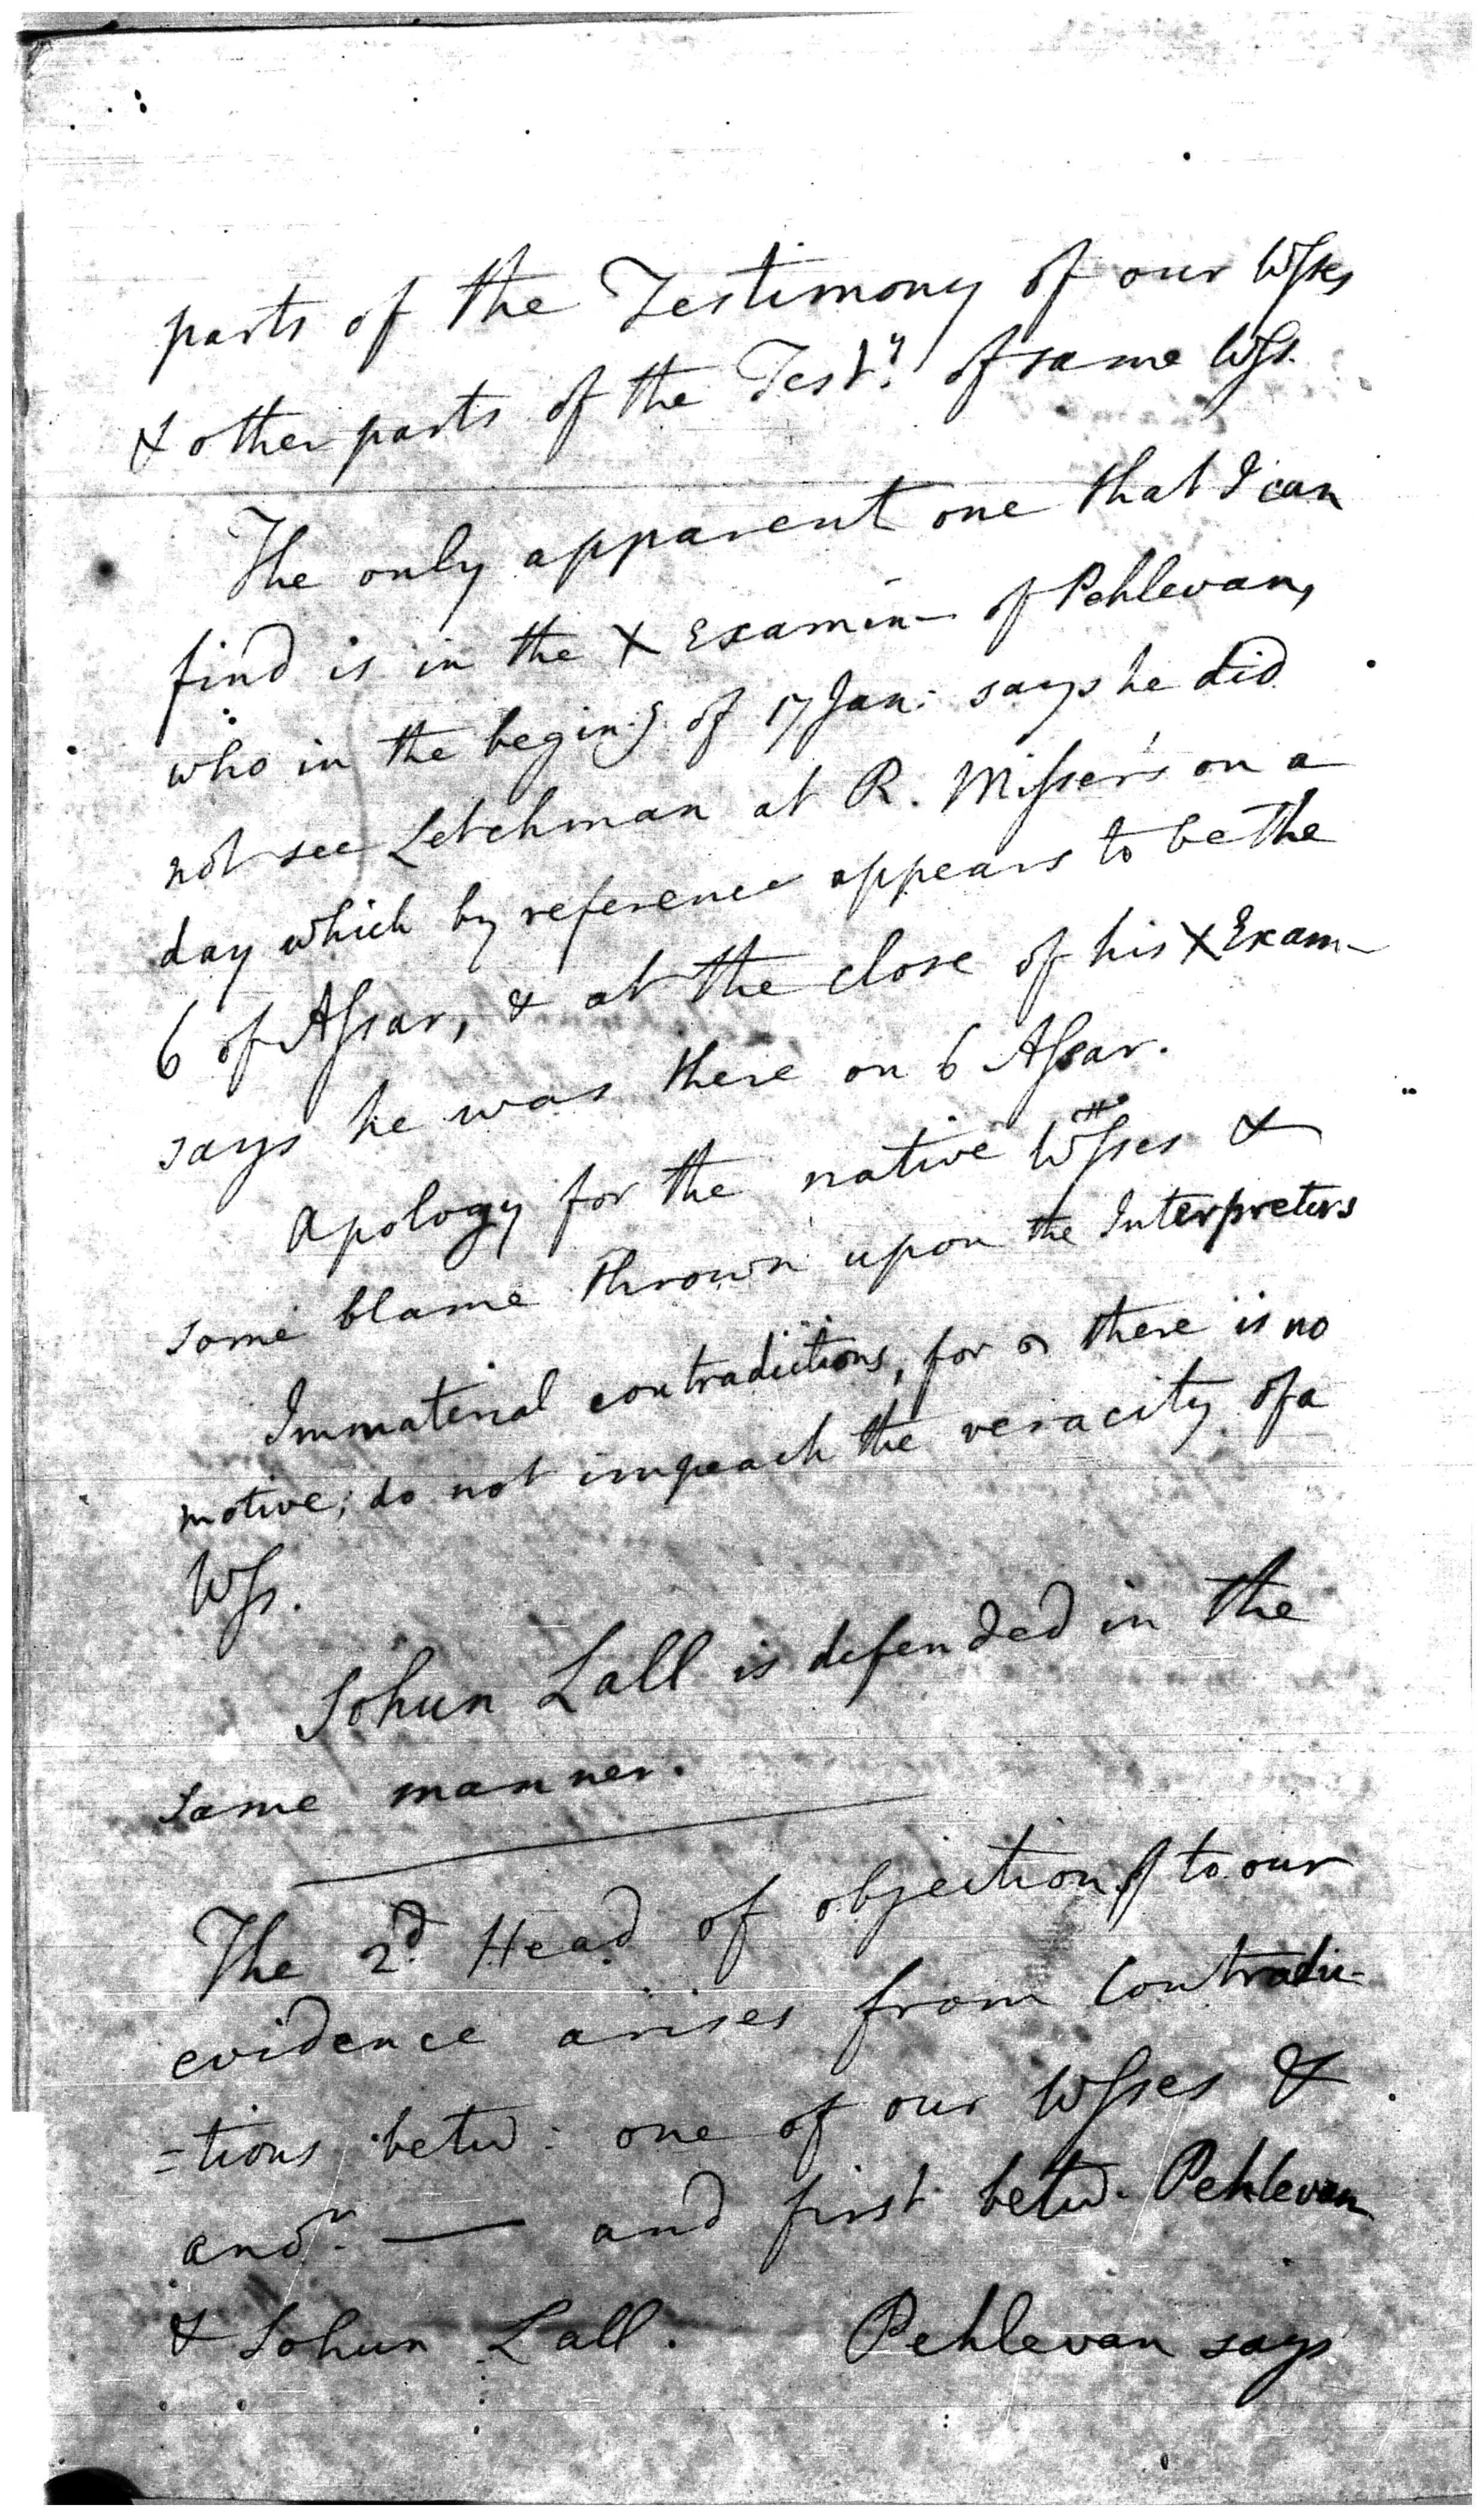 parts of the Testimony of our Wſses
& other parts of the Testy. of same Wſs.
The only apparent one that I can
find is in the X Examin- of Pehlevan,
who in the begin:g. of 17 Jan: says he did
not see Letchman at R. Miſser's on a
day which by reference appears to be the
6 of Aſsar, & at the close of his X Exam-
says he was there on 6 Aſsar.
Apology for the native Wſses &
some blame thrown upon the Interpreters
Immaterial contradictions, for there is no
motive, do not impeach the veracity of a
Wſs.
Sohun Lall is defended in the
same manner.
The 2d. Head of objection to our
evidence arises from Contradic-
=tions betw: one of our Wſses &
anor. — and first betw. Pehlevan
& Sohun Lall. Pehlevan says